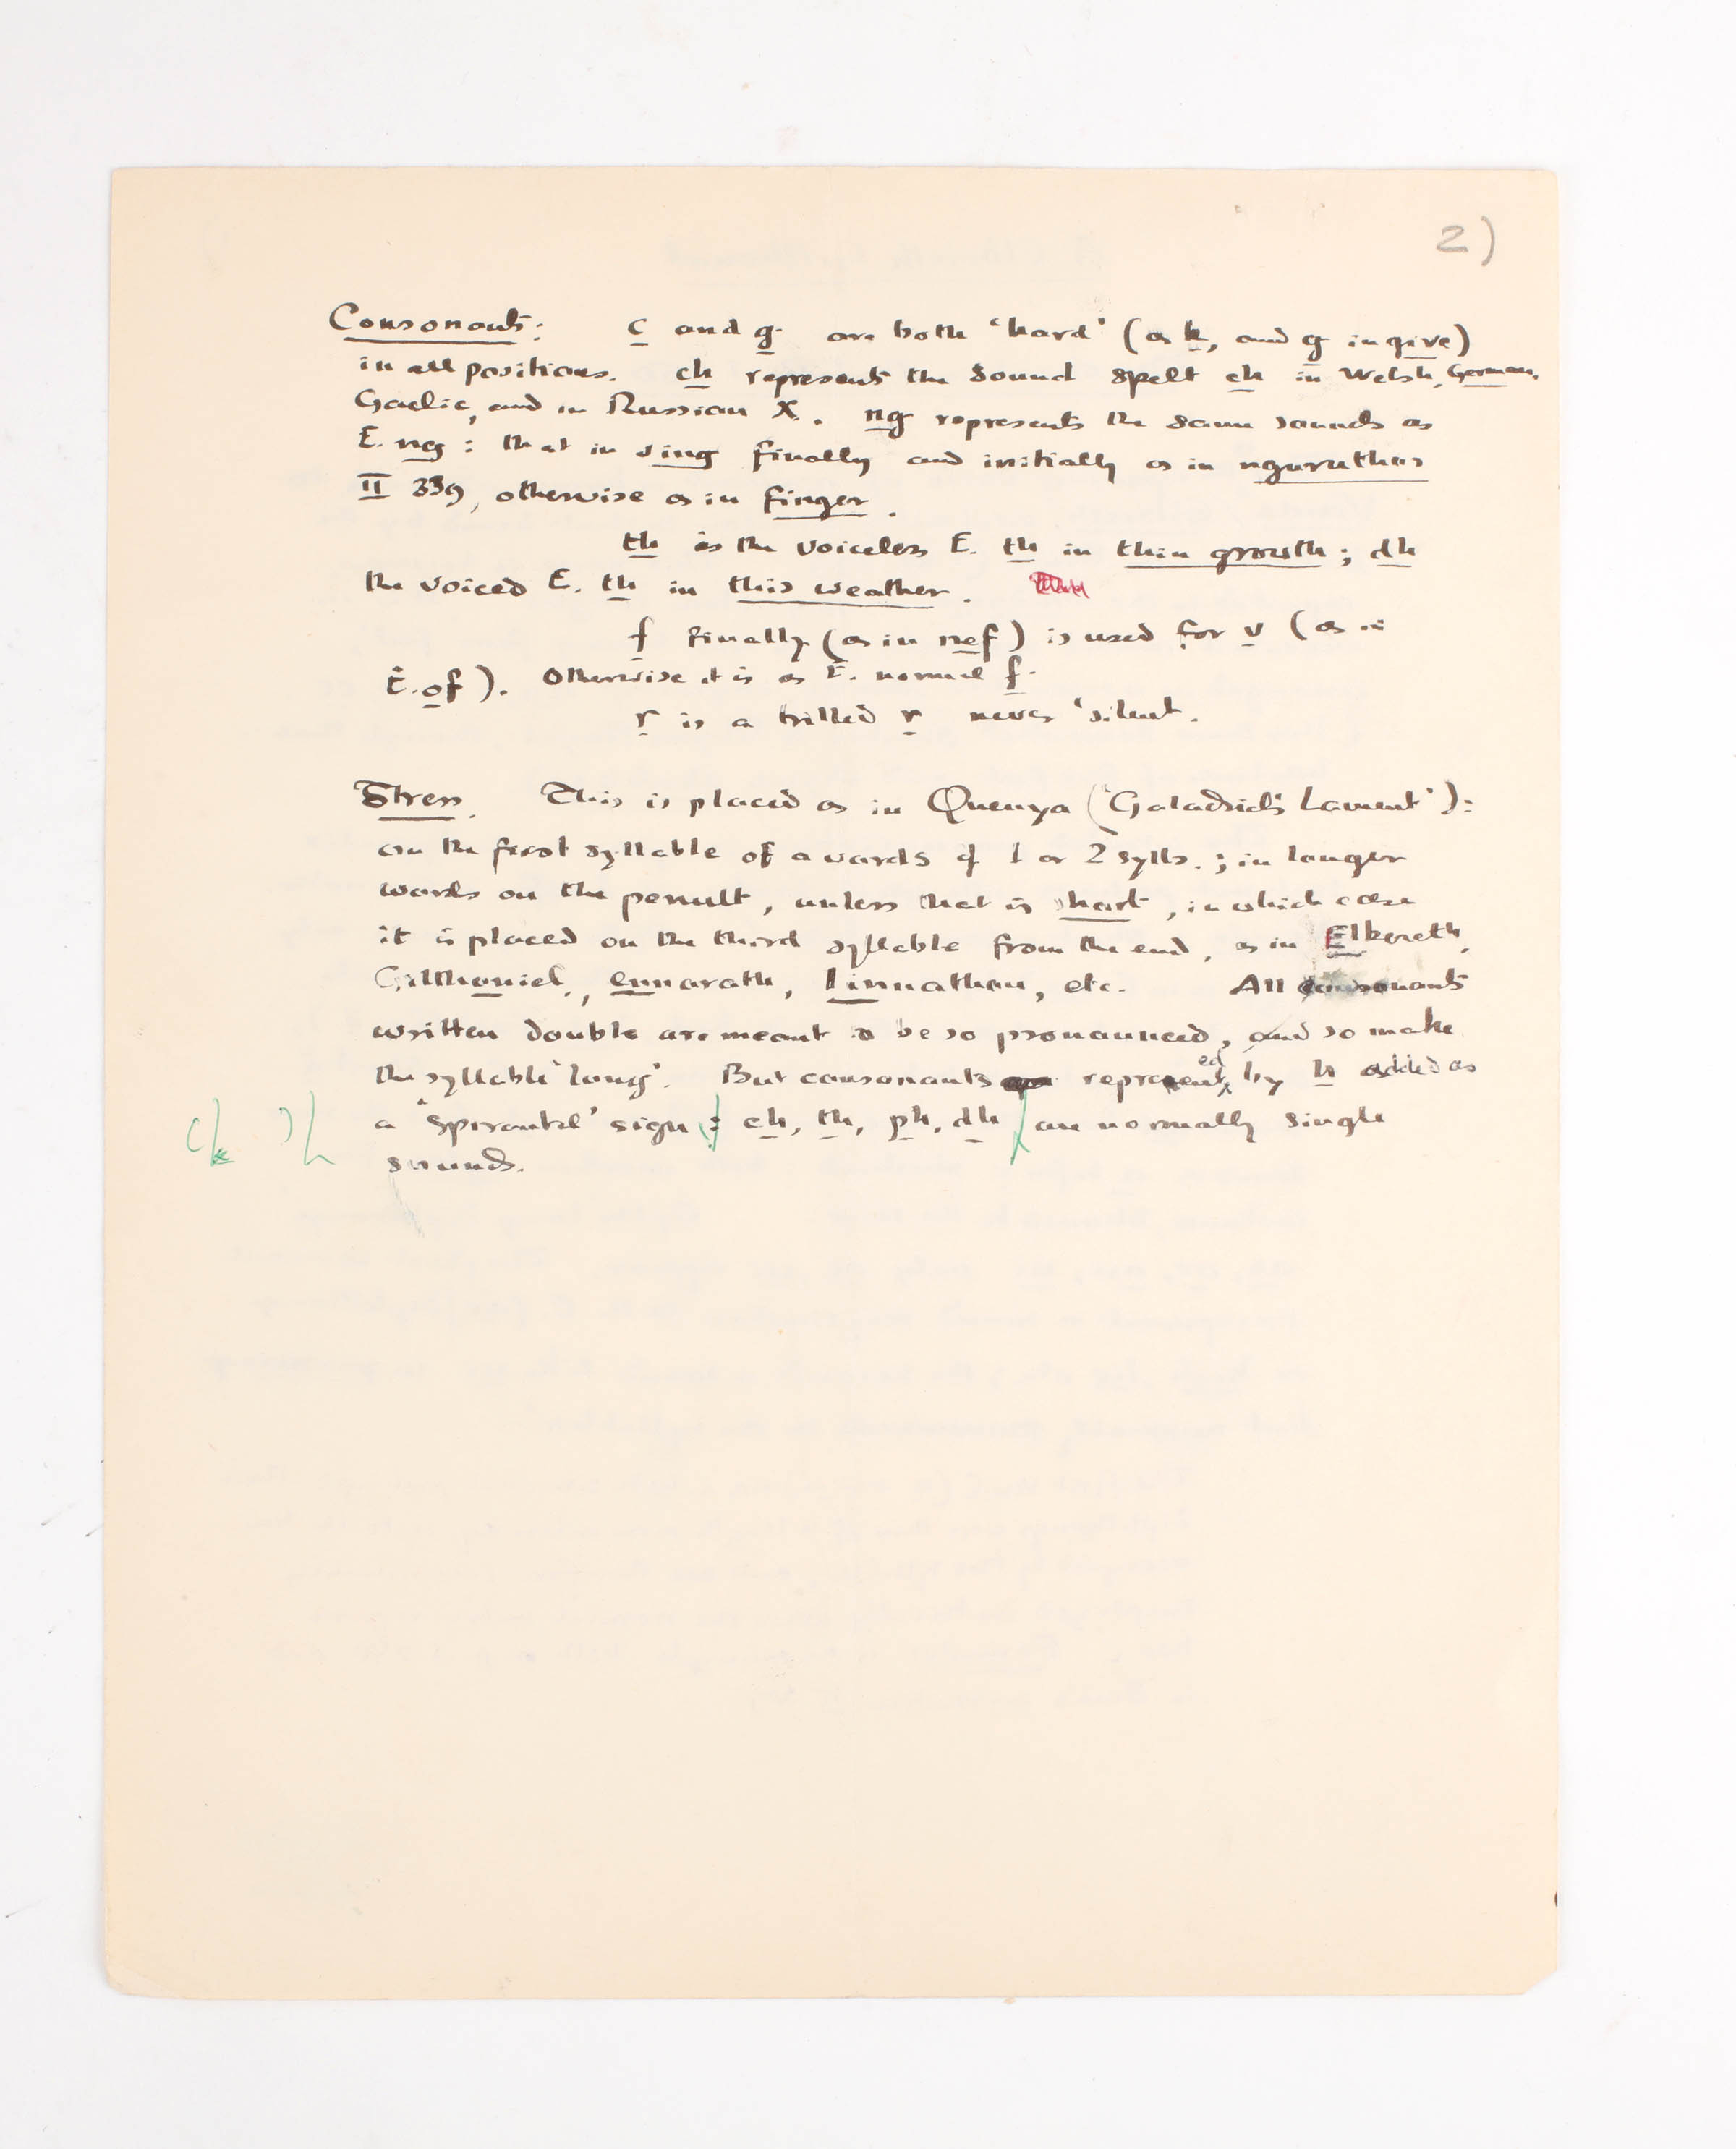 2)
Consonants: c and g are both 'hard' (as k, and g in give)
in all positions. ch represents the sound spelt ch in Welsh, German,
Gaelic, and in Russian X. ng represents the same sounds as
E. ng: that in sing finally and initially as in nguruthos
II 339, otherwise as in finger.
th is the voiceless E. th in thin growth; dh
the voiced E. th in this weather.
f finally (as in nef) is used for v (as in
E. of). Otherwise it is as E. normal f.
r is a trilled r never 'silent.
Stress. This is placed as in Quenya ('Galadriel's Lament'):
on the first syllable of a words of 1 or 2 sylls.; in longer
words on the penult, unless that is short, in which case
it is placed on the third syllable from the end, as in Elbereth,
Gilthoniel, ennorath, linnathon, etc. All consonants
written double are meant to be so pronounced, and so make
the syllable 'long'. But consonants represented by h added as
a 'spirantal' sign: ch, th, ph, dh are normally single
sounds.